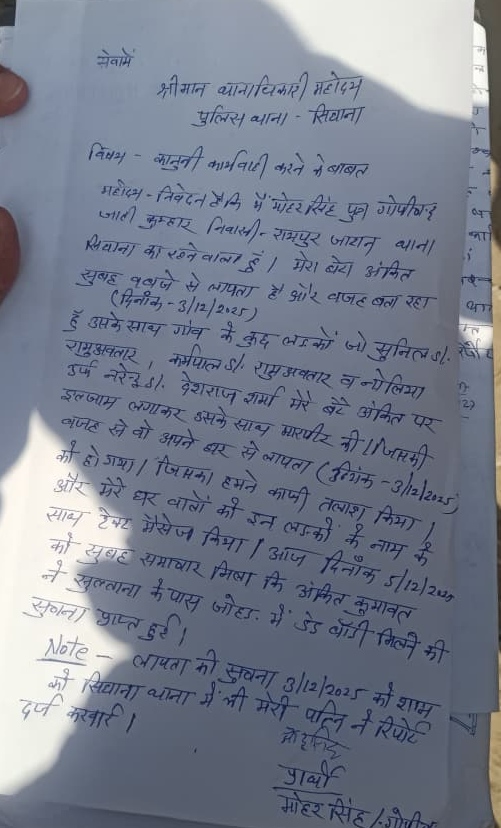 सेवामें
श्रीमान थानाधिकारी महोदय
पुलिस थाना - सिंघाना
विषय - कानुनी कार्यवाही करने के बाबत
महोदय - निवेदन है कि मैं मोहर सिंह पुत्र गोपीचन्द
जाती कुम्हार निवासी - रामपुर जाटान थाना
सिंघाना का रहने वाला हूँ। मेरा बेटा अंकित
सुबह बजे से लापता है और वजह बता रहा
(दिनाँक - 3/12/2025)
हूँ उसके साथ गांव के कुछ लडकों जो सुनिल S/.
रामुअवतार, कर्मपाल S/. रामुअवतार व गोलिया
उर्फ नरेन्द्र S/. देशराज शर्मा मेरे बेटे अंकित पर
इलजाम लगाकर उसके साथ मारपीट की। जिसकी
वजह से वो अपने घर से लापता (दिनांक - 3/12/2025)
को हो गया। जिसका हमने काफी तलाश किया।
और मेरे घर वालों को इन लडकों के नाम के
साथ टेक्ट मैसेज किया। आज दिनाँक 5/12/2025
को सुबह समाचार मिला कि अंकित कुमावत
ने सुल्ताना के पास जोहड में डेड बॉडी मिलने की
सुचना प्राप्त हुई।
Note - लापता की सुचना 3/12/2025 को शाम
को सिंघाना थाना में भी मेरी पत्नि ने रिपोर्ट
दर्ज करवाई।
प्रार्थी
मोहर सिंह /.